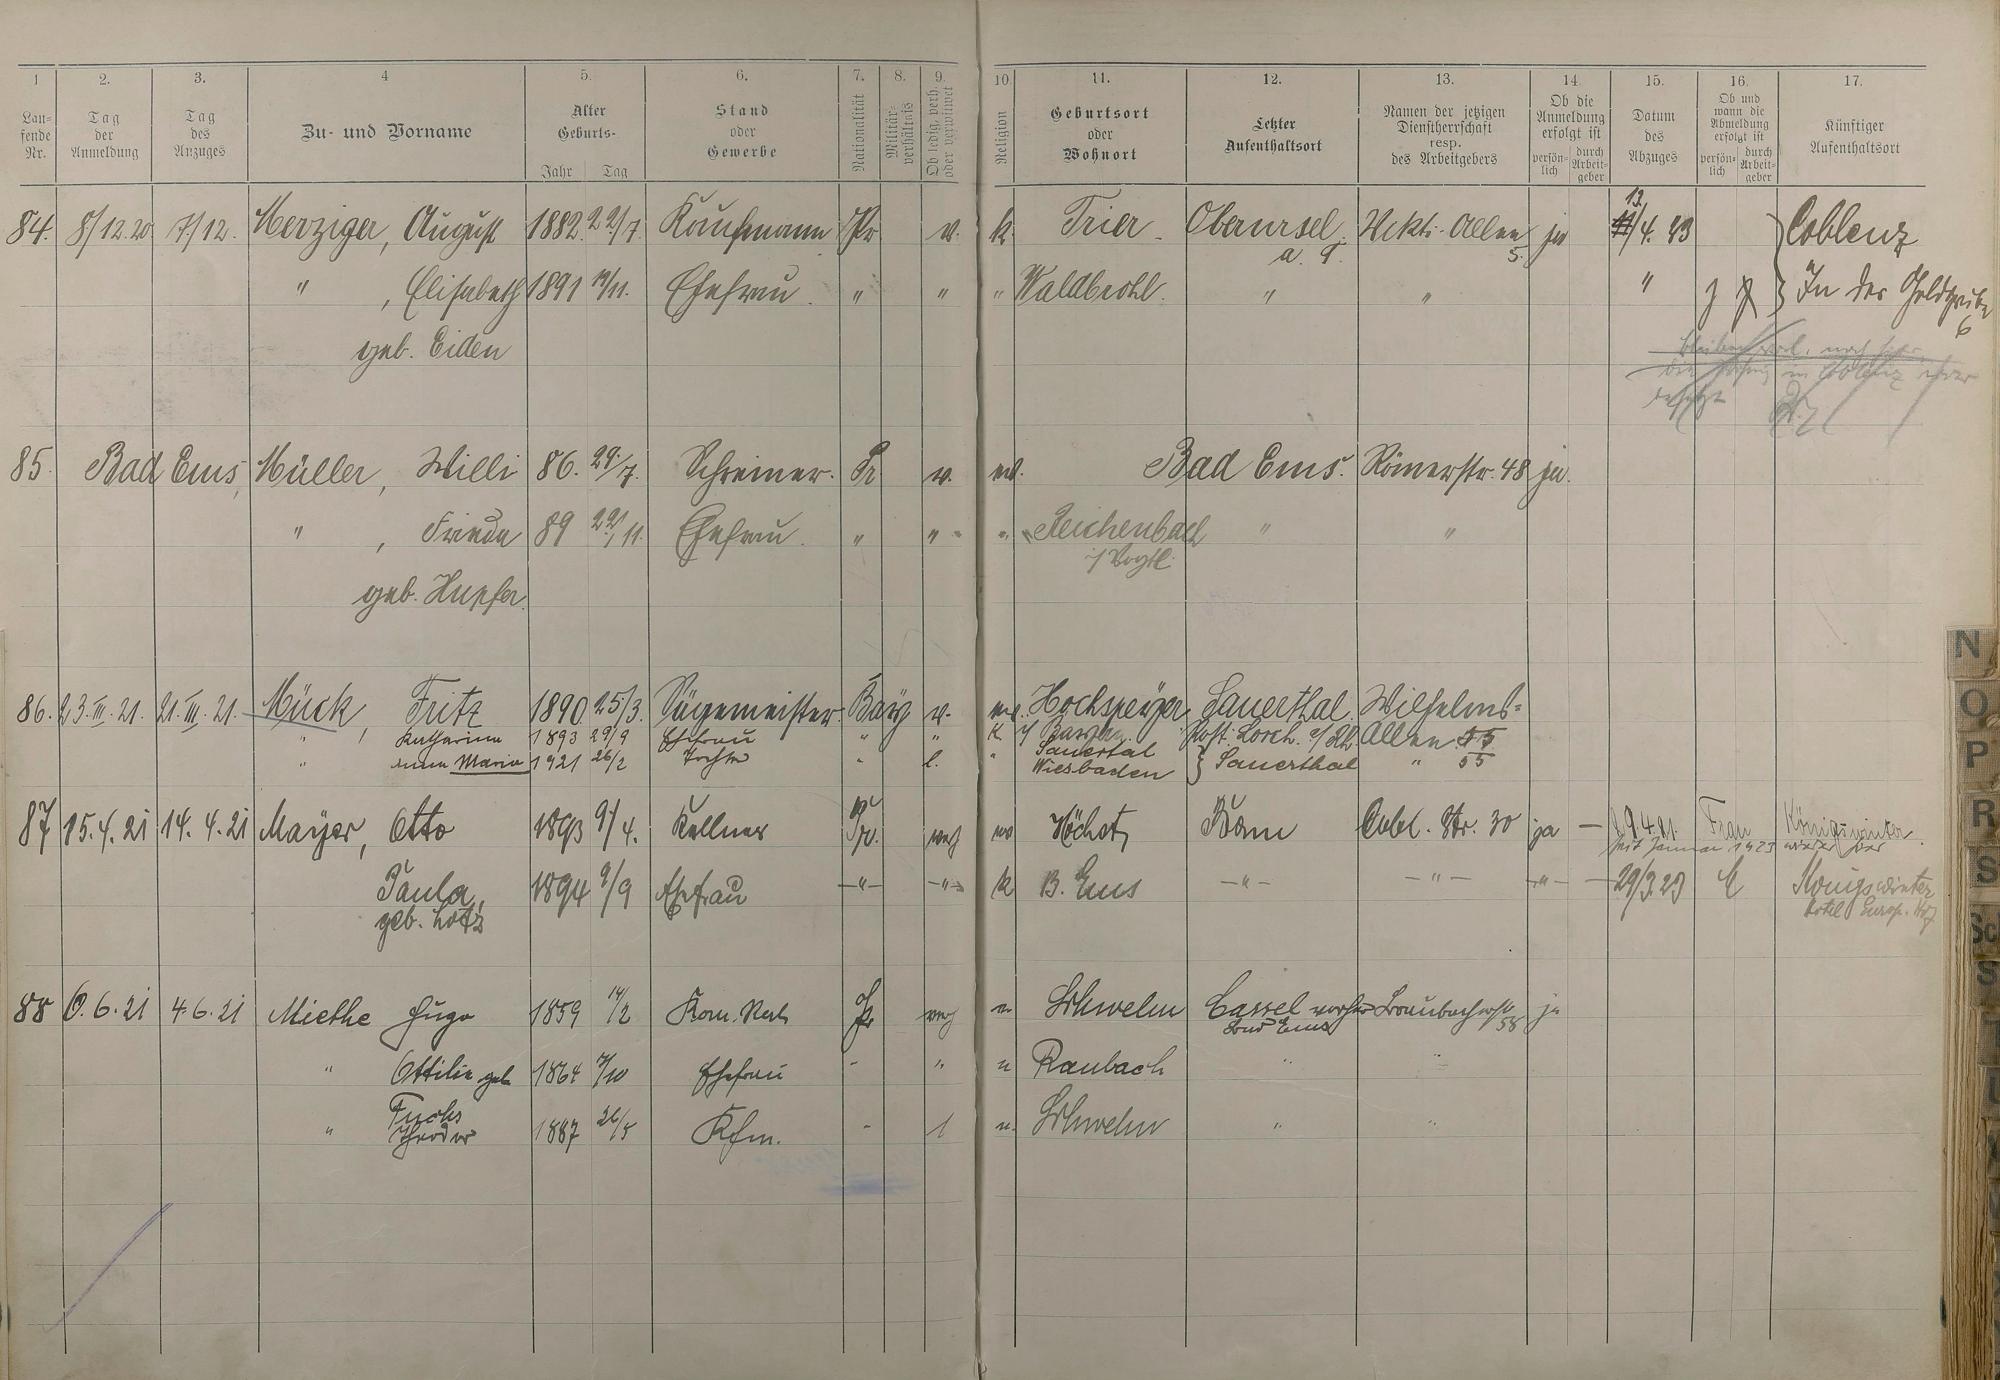 1 2. 3. 4 5. 6. 7. 8. 9. 10. 11. 12. 13. 14. 15. 16. 17.
Lau-
fende
Nr.
Tag
der
Anmeldung
Tag
des
Anzuges
Zu- und Vorname
Alter
Geburts-
Jahr Tag
Stand
oder
Gewerbe
Nationalität
Militär-
verhältnis
Ob ledig, verh.
oder verwitwet
Religion
Geburtsort
oder
Wohnort
Letzter
Aufenthaltsort
Namen der jetzigen
Dienstherrschaft
resp.
des Arbeitgebers
Ob die
Anmeldung
erfolgt ist
persön-
lich
durch
Arbeit-
geber
Datum
des
Abzuges
Ob und
wann die
Abmeldung
erfolgt ist
persön-
lich
durch
Arbeit-
geber
Künftiger
Aufenthaltsort
13.
84. 8/12.20 7/12. Merziger, August 1882. 22/7. Kaufmann Pr v. k. Trier Oberursel Vikt. Allee ja /4. 23 Coblenz
5.
" , Elisabeth 1891 Ehefrau. " " " Waldbrohl. " " " In der Goldgrube
6
geb. Eiden
in Coblenz
85. Bad Ems, Müller, Willi 86. 29./7. Schreiner. Pr v. ev. Bad Ems. Römerstr. 48 ja.
" , Frieda 89 11. Ehefrau. " " " Reichenbach " "
i/ Vogtl.
geb. Hupfer.
86. 23.III.21. 21.III.21. Mück, Fritz 1890 25/3. Sägemeister Bay v. ev. Hochspeyer Sauerthal Wilhelms-
" Katharina 1893 29/9 Ehefrau " " K Post. Lorch. a/Rh. Allee 55
" Anna Maria 1921 26/2 Tochter " l. " Sauertal
Wiesbaden } Sauerthal " 55
87 15.4.21 14.4.21 Mayer, Otto 1893 9/4. Kellner Pr. verh ev Höchst, Bonn Cobl. Str. 30 ja — 4.21. Frau Königswinter
seit Januar 1923 wieder hier
Paula, 1894 9/9 Ehefrau —"— —"— k B. Ems —"— —"— —"— 29/3.23 Königswinter
geb. Lotz Hotel Europ. Hof
88 6.6.21 4.6.21 Miethe Hugo 1859 14/2 Pr verh Schwelm Cassel vorher Braubacherstr ja
Bad Ems 58
" Ottilie geb 1864 /10 Ehefrau " " Raubach " "
Fuchs
" Theodor 1887 26/5 Kfm. " l Schwelm " "
N
O
P
R
S
Sch
S
T
U